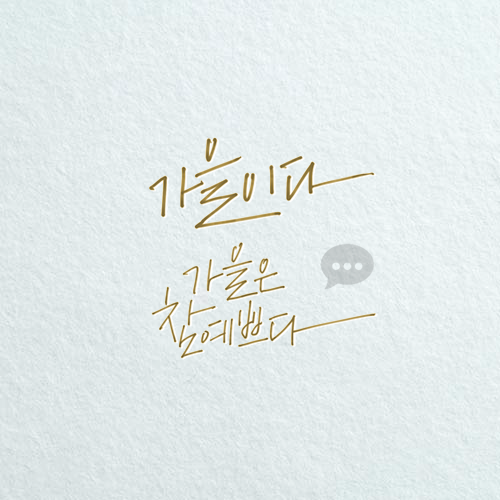 가을이다
가을은
참예쁘다